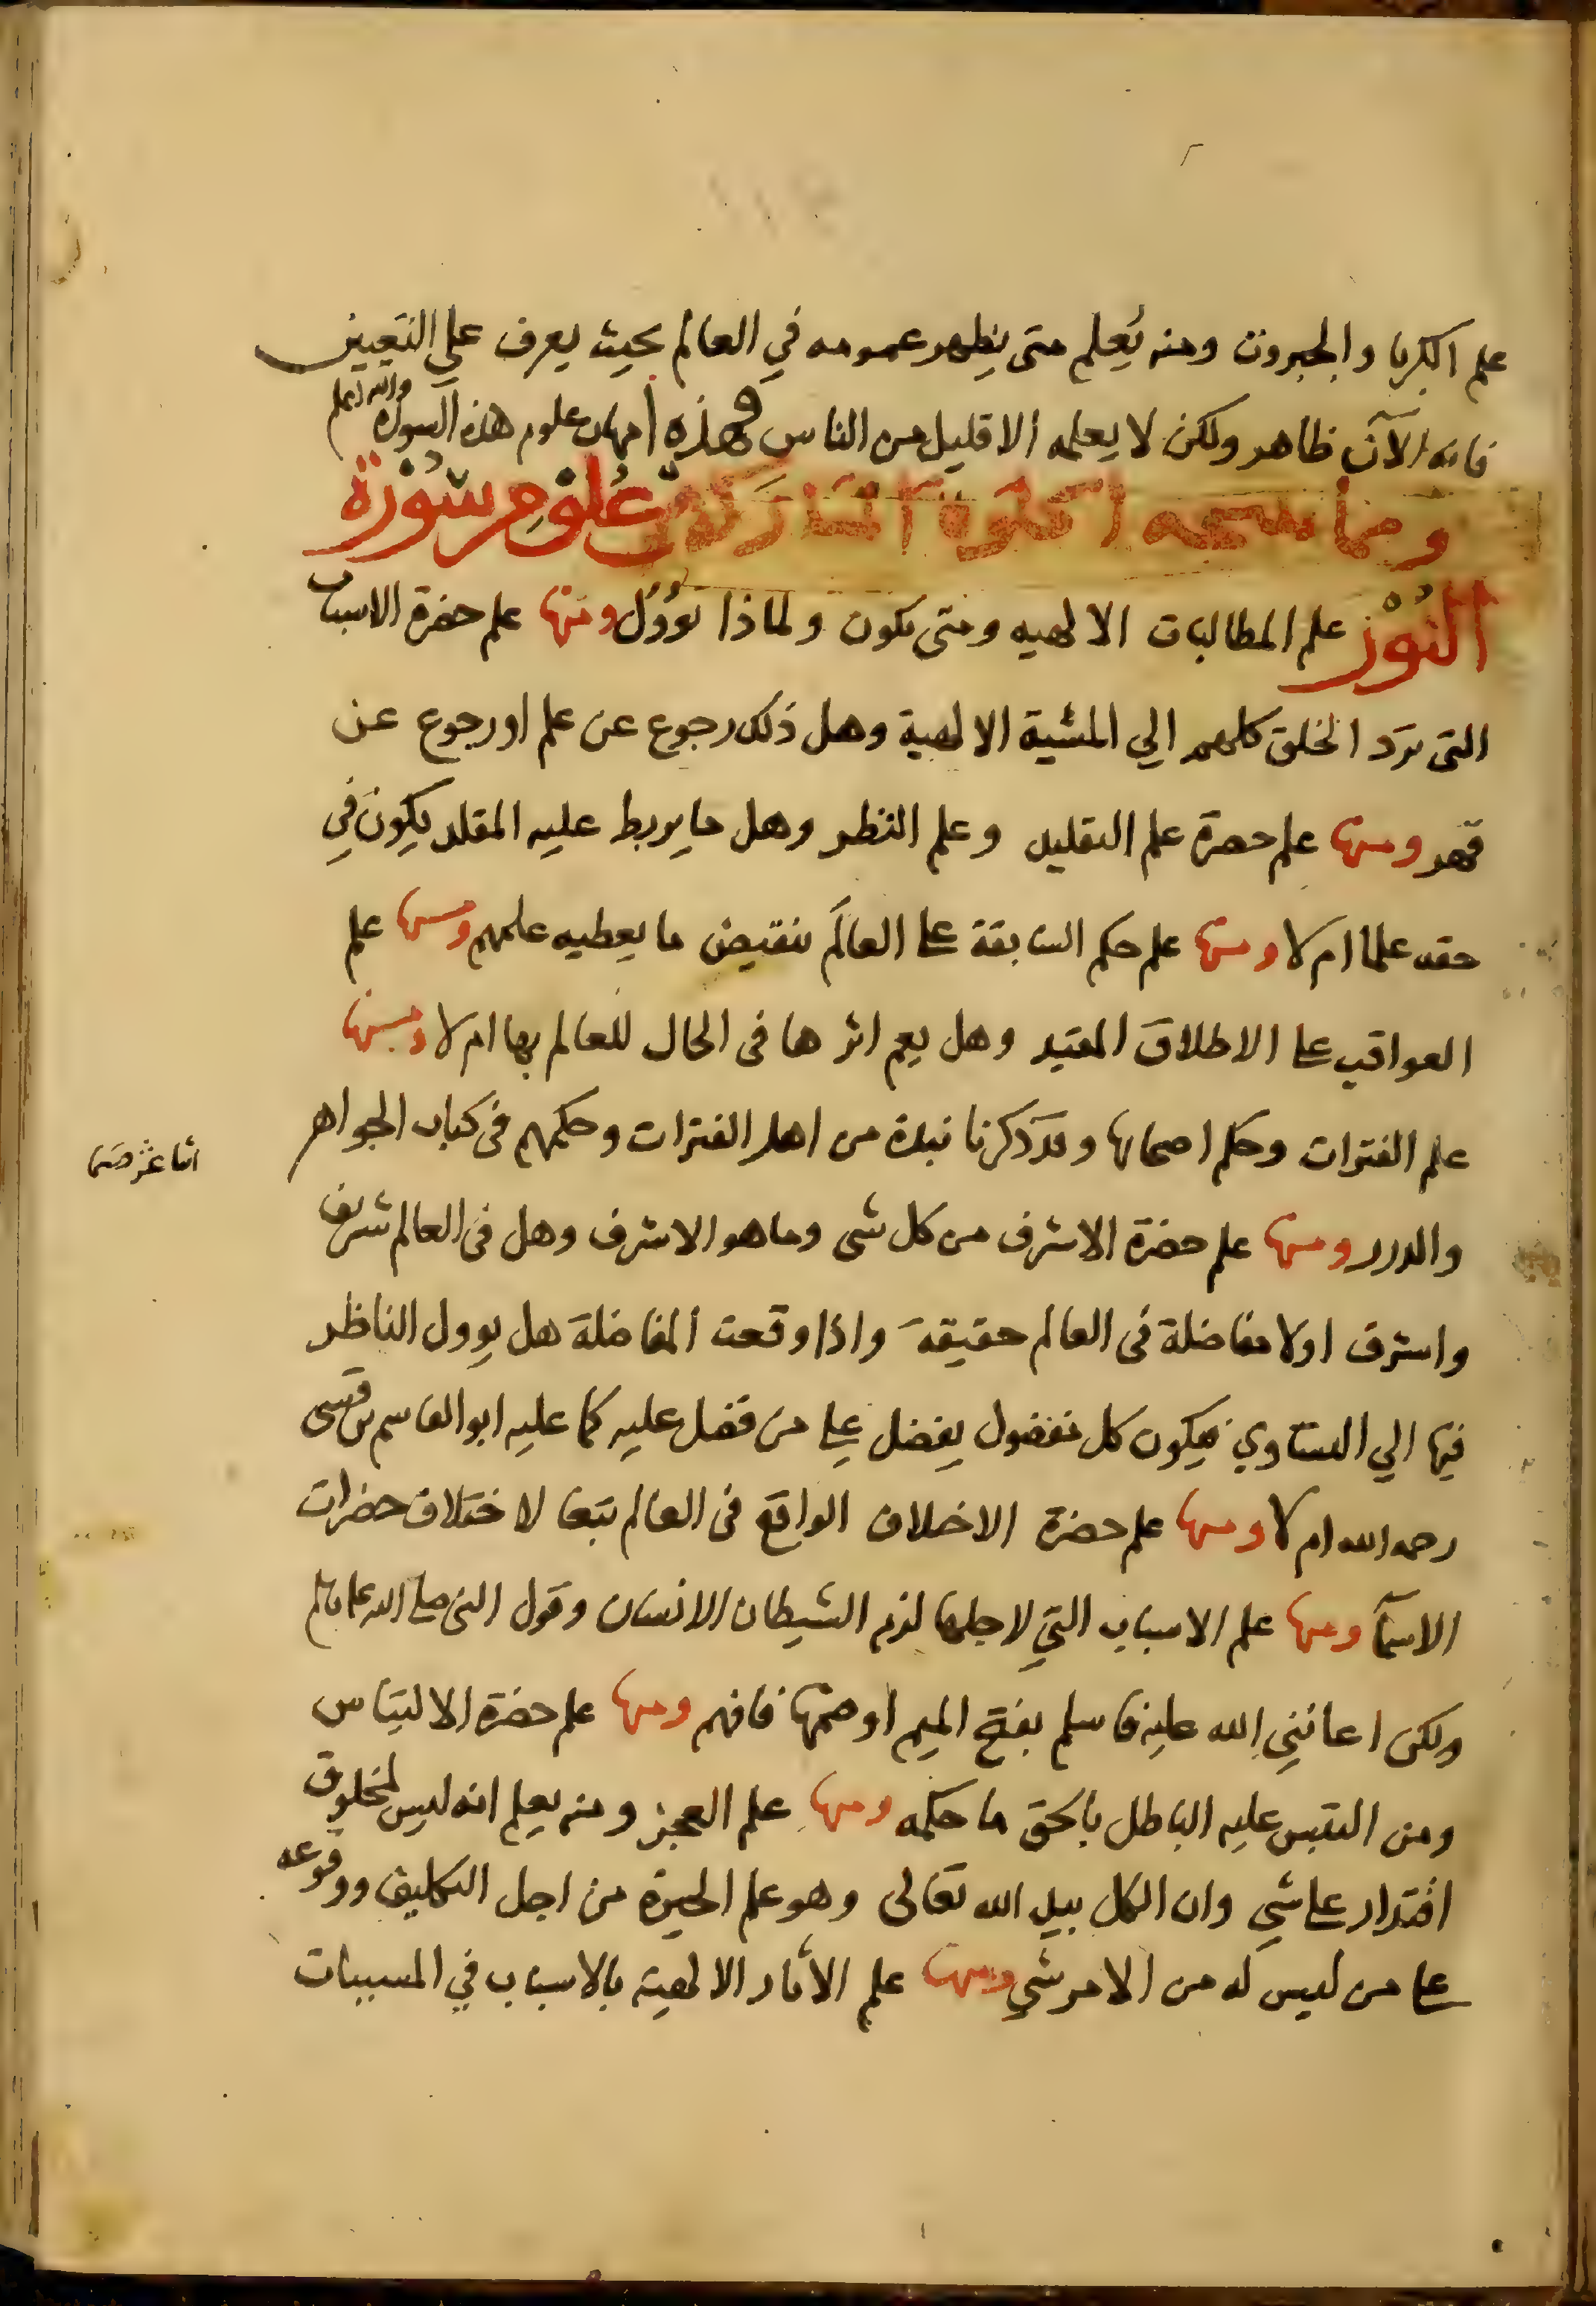 علم الكبريا والجبروت ومنه يُعلم متى يظهر عمومه في العالم بحيث يعرف على التعيين
فانه الآن ظاهر ولكن لا يعلمه الا قليل من الناس فهذه امهات علوم هذه السورة والله اعلم
ومما علوم سورة
النُوْر علم المطالبات الالهيه ومتى تكون ولماذا تؤول ومنها علم حضرة الاسباب
التى ترد الخلق كلهم الي المشية الالهية وهل ذلك رجوع عن علم او رجوع عن
قهر ومنها علم حضرة علم التقليد وعلم النظر وهل ما يربط عليه المقلد يكون في
حقه علما ام لا ومنها علم حكم السابقة على العالَم بنقيض ما يعطيه علمهم ومنها علم
العواقب على الاطلاق المقيد وهل يعم اثرها فى الحال للعالم بها ام لا ومنها
علم الفترات وحكم اصحابها وقد ذكرنا نبذة من اهل الفترات وحكمهم فى كتاب الجواهر
والدرر ومنها علم حضرة الاشرف من كل شى وما هو الاشرف وهل فى العالم شريف
واشرف اولا مفاضلة فى العالم حقيقة واذا وقعت المفاضلة هل يوول الناظر
فيها الي التساوي فيكون كل مفضول يفضل على من فضل عليه كما عليه ابو القاسم بن قسى
رحمه الله ام لا ومنها علم حضرة الاختلاف الواقع فى العالم تبعا لاختلاف حضرات
الاسمآ ومنها علم الاسباب التي لاجلها لزم الشيطان الانسان وقول النبى صلى الله عليه وسلم
ولكن اعانني الله عليه فاسلم بفتح الميم اوضمها فافهم ومنها علم حضرة الالتباس
ومن التبس عليه الباطل بالحق ما حكمه ومنها علم العجز ومنه يعلم انه ليس لمخلوق
اقتدار على شي وان الكل بيد الله تعالى وهو علم الحيرة من اجل التكليف ووقوعه
على من ليس له من الامر شي ومنها علم الأثار الالهية بالاسباب في المسببات